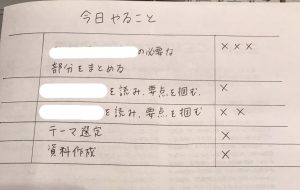 今日やること
の必要な ×××
部分をまとめる
を読み、要点を掴む. ×
を読み、要点を掴む ××
テーマ選定 ×
資料作成 ×